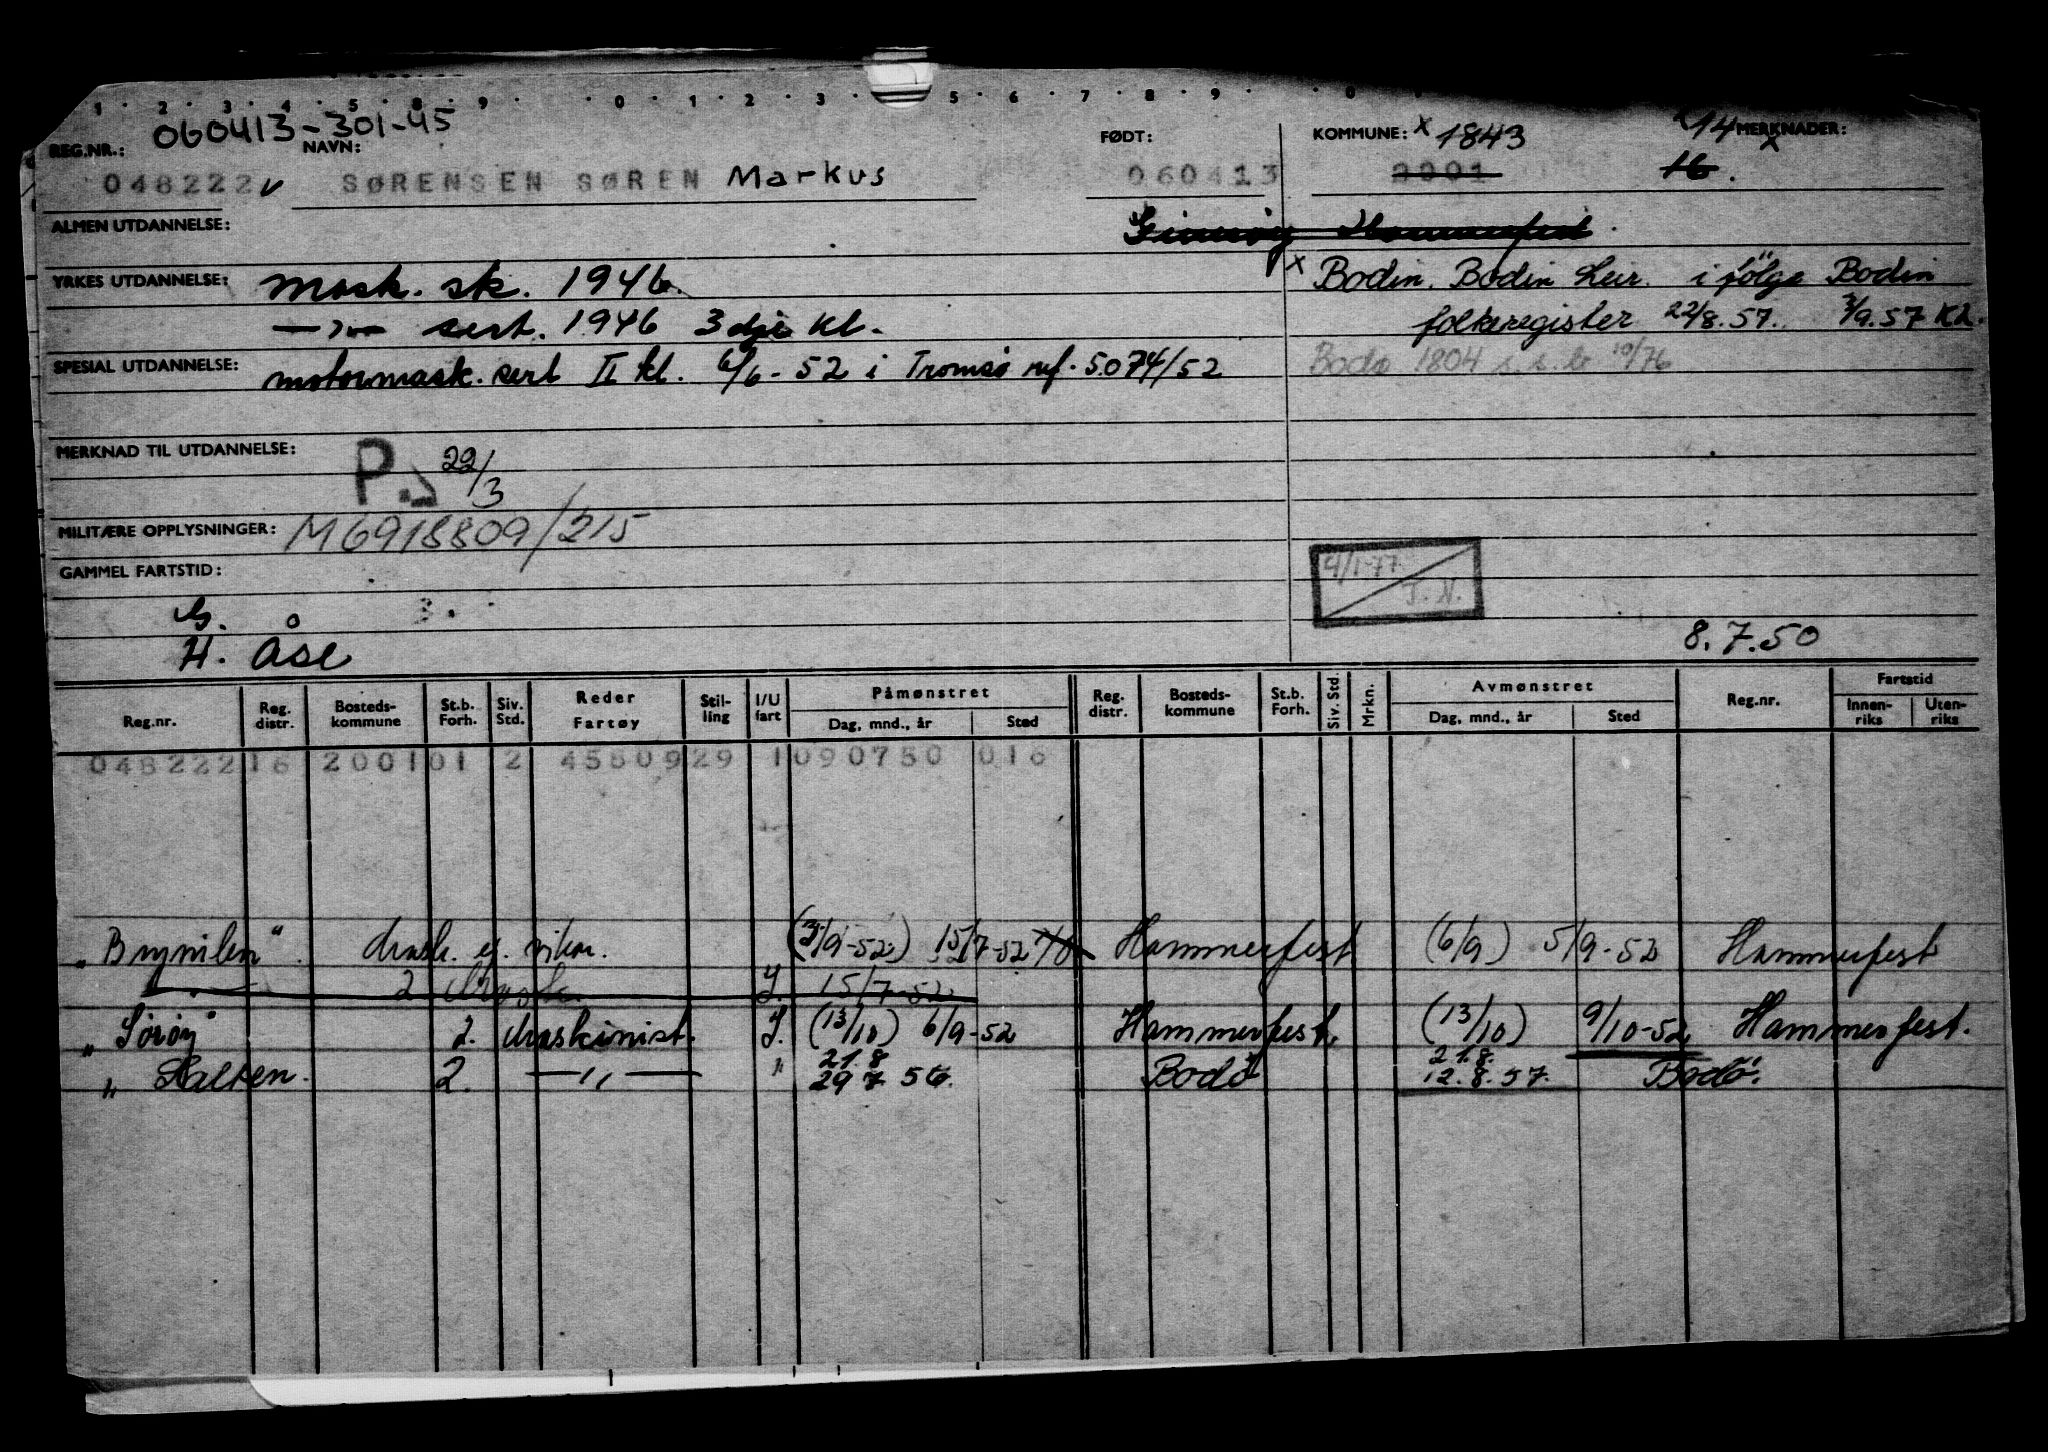 1 · 2 · 3 · 4 · 5 · 8 · 9 · · 0 · 1 · 2 · 3 · 5 · 6 · 7 · 8 · 9 · · 0
060413-301-45
REG.NR.: NAVN: FØDT: KOMMUNE: x 1843 14 MERKNADER: x
048222 v SØRENSEN SØREN Markus 060413 2001 16.
ALMEN UTDANNELSE: Hammerfest.
YRKES UTDANNELSE: mask. sk. 1946. x Bodin. Bodin Leir. i følge Bodin
—"— sert. 1946 3dje kl. folkeregister 22/8.57. 3/9.57 Kh.
SPESIAL UTDANNELSE: motormask. sert II kl. 6/6-52 i Tromsø ref. 5074/52 Bodø 1804 s.s.b 10/76
MERKNAD TIL UTDANNELSE: P. 22/3
MILITÆRE OPPLYSNINGER: M6918809/215
GAMMEL FARTSTID: 4/1-77 J.N.
G.
H. Åse 8.7.50
Reg.nr. Reg. distr. Bosteds-kommune St.b. Forh. Siv. Std. Reder Fartøy Stil-ling I/U fart Påmønstret Dag, mnd., år Sted Reg. distr. Bosteds-kommune St.b. Forh. Siv. Std. Mrkn. Avmønstret Dag, mnd., år Sted Reg.nr. Fartstid Innen-riks Uten-riks
048222 16 2001 01 2 45509 29 1 090750 016
„Brynilen" mask. vikar. (3/9-52) 15/7-52 Hammerfest (6/9) 5/9-52 Hammerfest
2 Mask. I. 15/7-52
„Sørøy" 2. Maskinist. I. (13/10) 6/9-52 Hammerfest. (13/10) 9/10-52 Hammerfest.
„ Salten. 2. —„— " 21.8 29 7 56. Bodø 21.8. 12.8.57. Bodø.